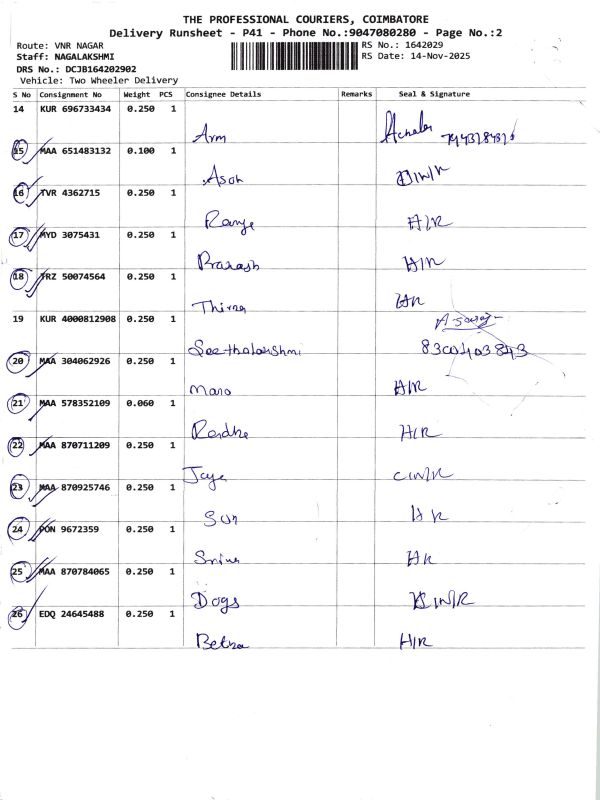 THE PROFESSIONAL COURIERS, COIMBATORE
Delivery Runsheet - P41 - Phone No.:9047080280 - Page No.:2
Route: VNR NAGAR
RS No.: 1642029
Staff: NAGALAKSHMI
RS Date: 14-Nov-2025
DRS No.: DCJB164202902
Vehicle: Two Wheeler Delivery
S No Consignment No Weight PCS Consignee Details Remarks Seal & Signature
14 KUR 696733434 0.250 1
Arm
15 MAA 651483132 0.100 1
Asok
16 TVR 4362715 0.250 1
H/R
17 MYD 3075431 0.250 1
Prakash H/R
18 TRZ 50074564 0.250 1
HR
19 KUR 4000812908 0.250 1
Seethalakshmi 8300403843
20 MAA 304062926 0.250 1
Mano H/R
21 MAA 578352109 0.060 1
Radha H/R
22 MAA 870711209 0.250 1
Jaya C/W/R
23 MAA 870925746 0.250 1
Sun HR
24 PON 9672359 0.250 1
HR
25 MAA 870784065 0.250 1
Dogs
26 EDQ 24645488 0.250 1
H/R